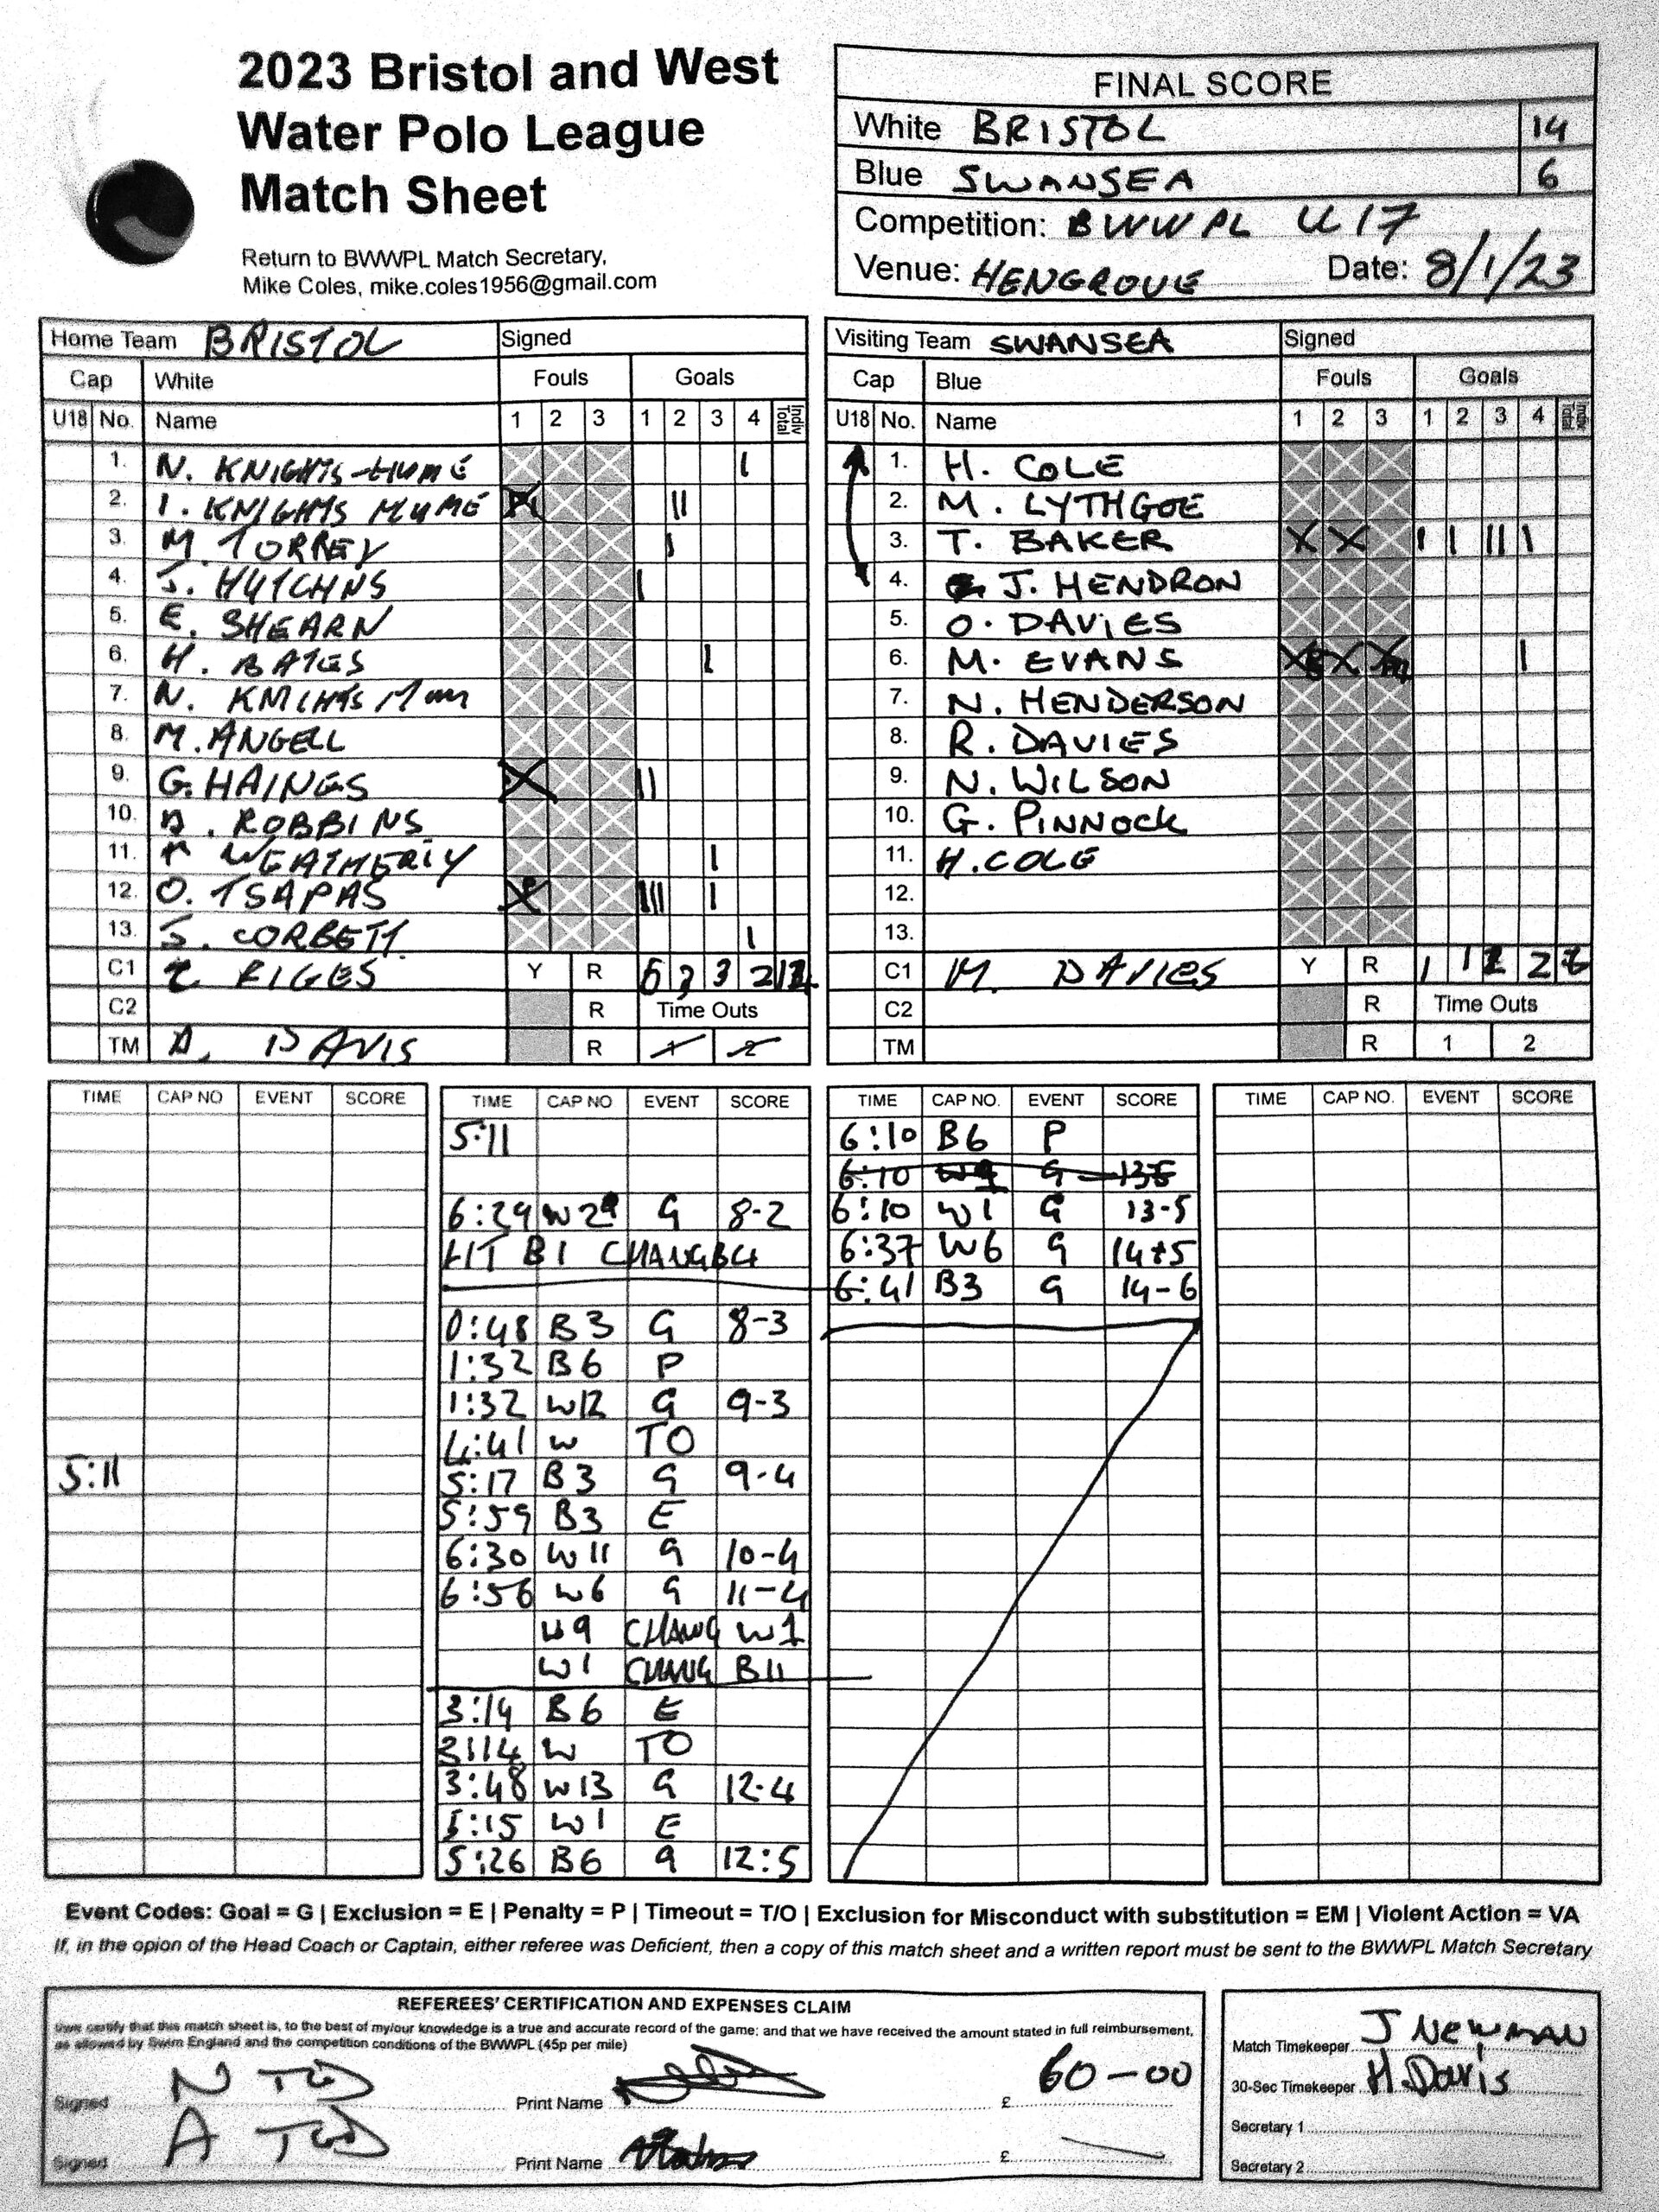 2023 Bristol and West
Water Polo League
Match Sheet
Return to BWWPL Match Secretary,
Mike Coles, mike.coles1956@gmail.com
FINAL SCORE
White BRISTOL 14
Blue SWANSEA 6
Competition: BWWPL U17
Venue: HENGROVE Date: 8/1/23
Home Team BRISTOL Signed
Cap White Fouls Goals
U18 No. Name 1 2 3 1 2 3 4 Indiv Total
1. N. KNIGHTS-HUME
2. I. KNIGHTS HUME
3. M TORREY
4. J. HUTCHNS
5. E. SHEARN
6. H. BATES
7. N. KNIGHTS
8. M. ANGELL
9. G. HAINES
10. . ROBBINS
11. WEATHERLY
12. O. TSAPAS
13. S. CORBETT
C1 RIGES Y R 3 2
C2 R Time Outs
TM A. DAVIS R 1 2
Visiting Team SWANSEA Signed
Cap Blue Fouls Goals
U18 No. Name 1 2 3 1 2 3 4
1. H. COLE
2. M. LYTHGOE
3. T. BAKER
4. J. HENDRON
5. O. DAVIES
6. M. EVANS
7. N. HENDERSON
8. R. DAVIES
9. N. WILSON
10. G. PINNOCK
11. H. COLE
12.
13.
C1 M. DAVIES Y R 1 1 2 2 6
C2 R Time Outs
TM R 1 2
TIME CAP NO EVENT SCORE
5:11
TIME CAP NO EVENT SCORE
5:11
6:29 W2 G 8-2
HT B1 CHANG B4
0:48 B3 G 8-3
1:32 B6 P
1:32 W12 G 9-3
4:41 W TO
5:17 B3 G 9-4
5:59 B3 E
6:30 W11 G 10-4
6:56 W6 G 11-4
W9 CHANG W1
W1 CHANG B11
3:14 B6 E
3:14 W TO
3:48 W13 G 12-4
5:15 W1 E
5:26 B6 G 12:5
TIME CAP NO. EVENT SCORE
6:10 B6 P
6:10 G
6:10 W1 G 13-5
6:37 W6 G 14-5
6:41 B3 G 14-6
TIME CAP NO. EVENT SCORE
Event Codes: Goal = G | Exclusion = E | Penalty = P | Timeout = T/O | Exclusion for Misconduct with substitution = EM | Violent Action = VA
If, in the opion of the Head Coach or Captain, either referee was Deficient, then a copy of this match sheet and a written report must be sent to the BWWPL Match Secretary
REFEREES' CERTIFICATION AND EXPENSES CLAIM
I/we certify that this match sheet is, to the best of my/our knowledge is a true and accurate record of the game; and that we have received the amount stated in full reimbursement,
as allowed by Swim England and the competition conditions of the BWWPL (45p per mile)
Signed N Print Name £ 60-00
Signed A Print Name £
Match Timekeeper J NEWMAN
30-Sec Timekeeper H. Davis
Secretary 1
Secretary 2